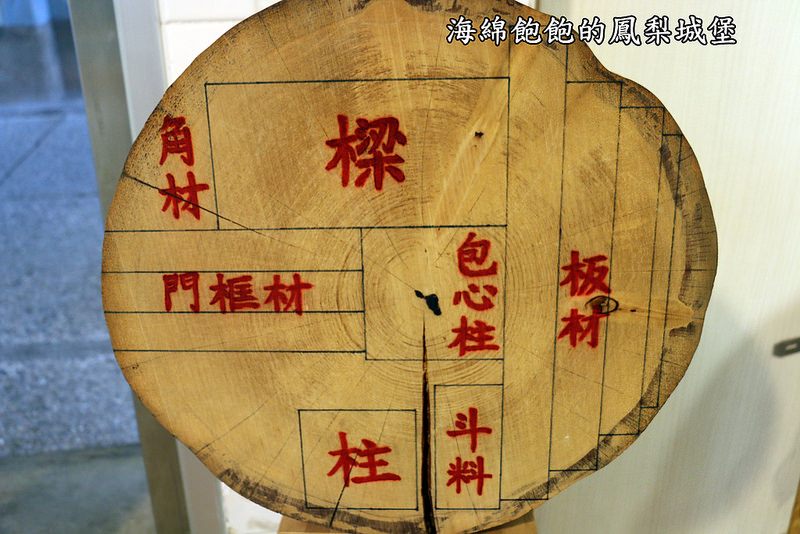 海綿飽飽的鳳梨城堡
樑
角材
包心柱
門框材
板材
柱
斗料